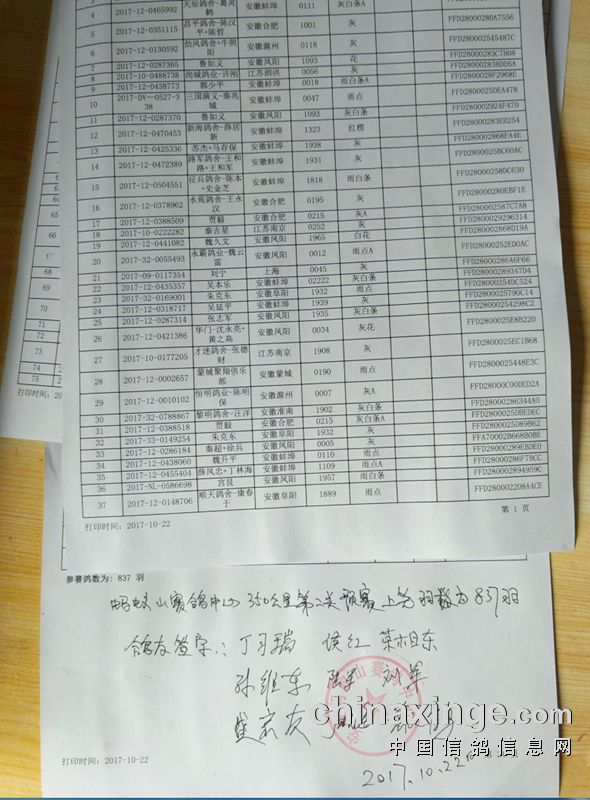 天辰鸽舍-葛灵鹤
2017-12-0465992 安徽蚌埠 0111 灰白条A
5 2017-12-0351115 昌平鸽舍-陈汉平+陈哲 安徽合肥 1001 灰 FFD28000280A7556
6 2017-12-0130592 劲风鸽舍-牛照阳 安徽滁州 0118 灰 FFD2800002545487C
7 2017-12-0287365 鲁如义 安徽凤阳 1093 花 FFD2800283C7B08
8 2017-10-0488738 尚城鸽业-许刚 江苏泗洪 0056 灰 FFD2800002838DD5A
9 2017-12-0438773 郭少平 安徽蚌埠 0018 雨白条A FFD28000028F2968E
10 2017-DV-0527-338 三国演义-秦兆城 安徽蚌埠 0047 雨点 FFD2800025DEA478
11 2017-12-0287370 鲁如义 安徽凤阳 1093 灰白条 FFD280002924F470
12 2017-12-0470453 新海鸽舍-薛居新 安徽蚌埠 1323 红楞 FFD2800283EB254
13 2017-12-0425336 苏杰+马存保 安徽蚌埠 1938 灰 FFD280002868FA4E
14 2017-12-0472389 路军鸽舍-王和路+王和军 安徽蚌埠 1931 灰 FFD280025BC60AC
15 2017-12-0504551 征兵鸽舍-陈本+史金芝 安徽蚌埠 1818 雨白条 FFD2800258DC630
16 2017-12-0378962 水苑鸽舍-王永汉 安徽合肥 0195 灰 FFD28000280EBF1E
17 2017-12-0388509 贾毅 安徽合肥 0215 灰A FFD280002587C7A8
18 2017-10-0222282 秦吉星 江苏南京 0252 灰 FFD2800029296314
19 2017-12-0441082 魏久文 安徽凤阳 1965 白花 FFD280002868D19A
20 2017-32-0055493 水霸鸽业-魏云雷 安徽凤阳 0012 雨点A FFD28000252ED0AC
21 2017-09-0117354 刘宁 上海 0045 灰 FFD28000286A6F66
22 2017-12-0435357 吴本乐 安徽蚌埠 02222 灰白条 FFD2800289347D4
23 2017-32-0169001 朱克东 安徽阜阳 1932 雨点 FFD2800254DC524
24 2017-12-0318717 吴延平 安徽蚌埠 1939 灰 FFD2800025790C14
25 2017-12-0287314 张志军 安徽凤阳 1935 灰白条 FFD28000254298C2
26 2017-12-0421386 华门-沈永亮+黄之高 安徽凤阳 0034 灰花 FFD2800025E8B220
27 2017-10-0177205 才迷鸽舍-张德财 江苏南京 1908 灰 FFD2800025EC1B68
28 2017-12-0002657 蒙城聚翔俱乐部 安徽蒙城 0190 雨点 FFD28000025448E3C
29 2017-12-0010102 恒明鸽业-陈明保 安徽滁州 0007 灰A FFD280000C00DED2A
30 2017-32-0788867 黎明鸽舍-汪洋 安徽淮南 1902 灰白条 FFD28000286344A0
31 2017-12-0388518 贾毅 安徽合肥 0215 灰白条A FFD2800025DBEDEC
32 2017-33-0149254 朱克东 安徽阜阳 1932 灰 FFD2800025D89B62
33 2017-12-0286184 秦超+徐兵 安徽凤阳 0005 灰 FFA70002B668B0BE
34 2017-12-0438060 魏升平 安徽蚌埠 0110 雨点 FFD2800289EBDE0
35 2017-12-0455404 薛凤忠+丁林海 安徽蚌埠 1109 雨点A FFD28000286F78CC
36 2017-NL-0586698 宫良 安徽凤阳 1957 雨白条 FFD280002894959C
37 2017-12-0148706 顺天鸽舍-康春于 安徽阜阳 1889 雨点 FFD280002208A4CE
打印时间：2017-10-22 第 1 页
68
69
70
71
72
73
74
75
参赛鸽数为：837 羽
山赛鸽中心350公里第二关预赛上笼羽数为837羽
鸽友签字：丁习瑞 侯红 荣旭东
孙维东 陆军 刘军
打印时间：2017-10-22
2017.10.22
chinaxinge.com
中国信鸽信息网